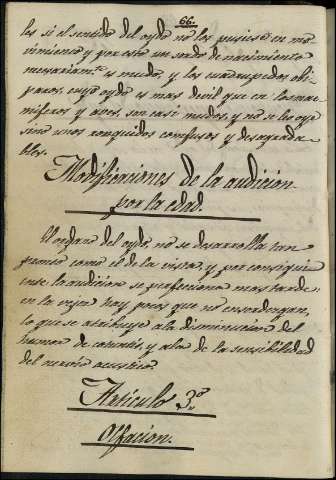 66.
les si el sentido del oydo no los pusiese en mo-
vimiento y por esto un sordo de nacimiento
necesariam.te es mudo, y los cuadrupedos, obi-
paros, cuyo oydo es mas devil que en los ma-
miferos y aves, son casi mudos, y no se les oye
sino unos ronquidos confusos y desagrada-
bles.
Modificaciones de la audicion
por la edad.
El organo del oydo, no se desarrolla tan
pronto como el de la vista, y por consigui-
ente la audicion se perfecciona mas tarde:
en la vejez hay pocos que no ensordezcan,
lo que se atribuye a la disminucion del
humor de cotunio, y a la de la sensibilidad
del nervio acustico.
Articulo 3.º
Olfacion.